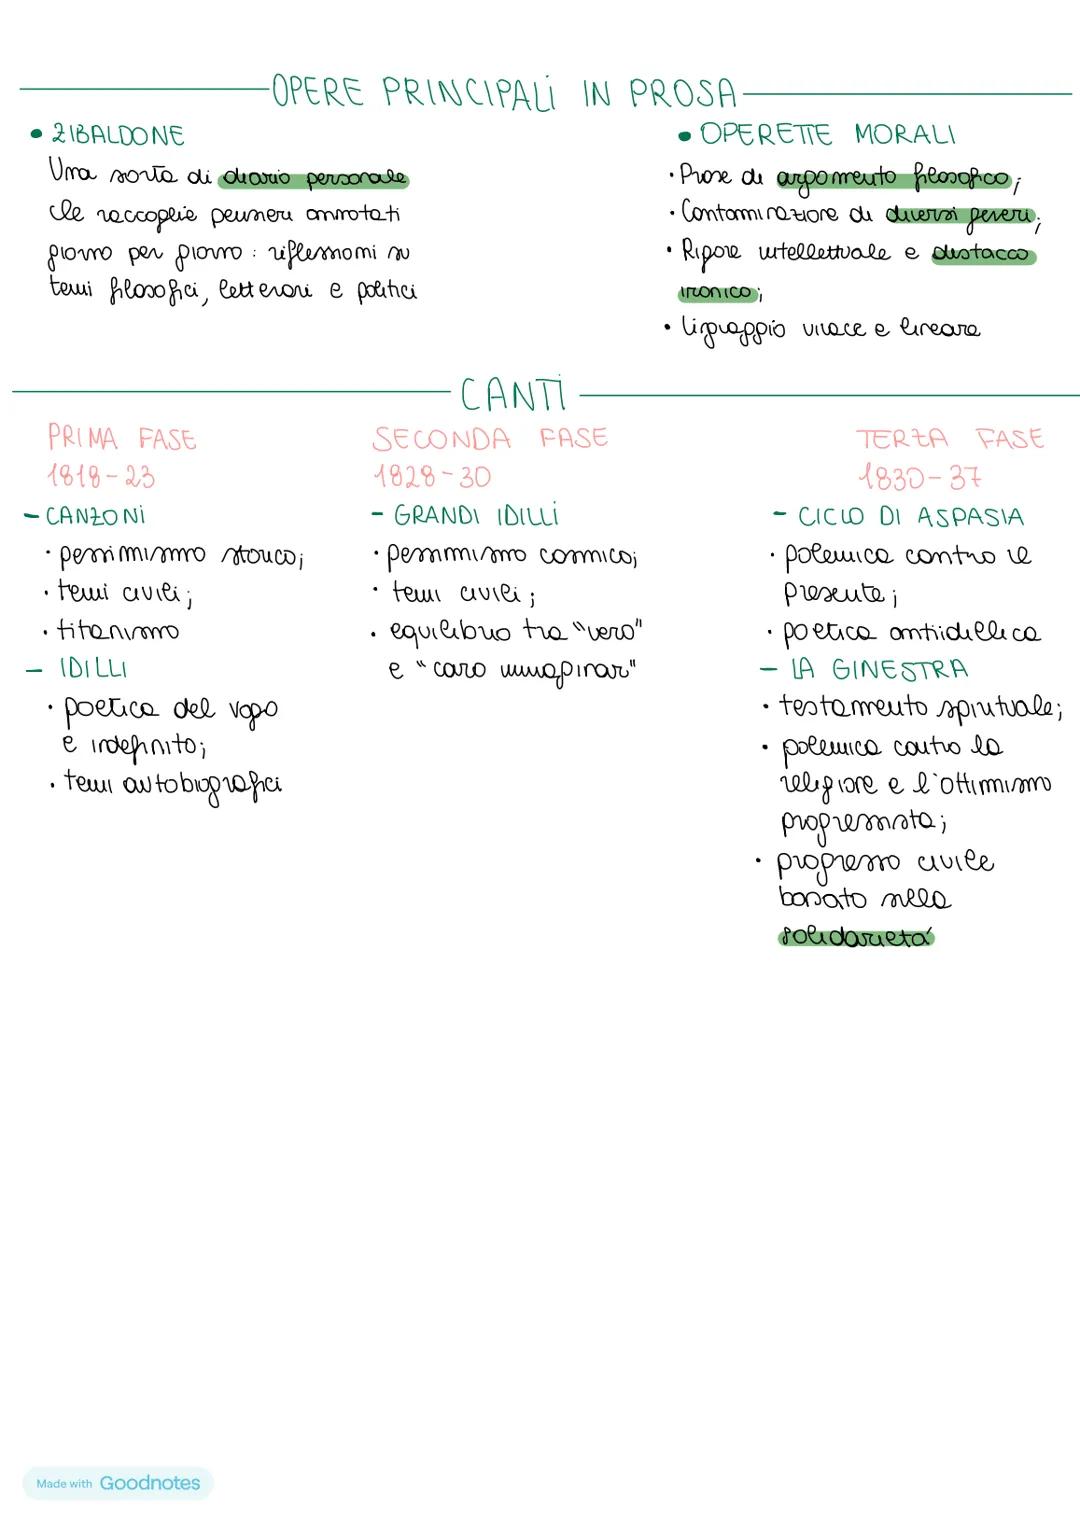 OPERE PRINCIPALI IN PROSA
• ZIBALDONE
Una sorta di diario personale
che raccoglie pensieri annotati
giorno per giorno: riflessioni su
temi filosofici, letterari e politici
• OPERETTE MORALI
· Prose di argomento filosofico;
· Contaminazione di diversi generi;
· Rigore intellettuale e distacco
ironico;
· linguaggio vivace e lineare
CANTI
PRIMA FASE
1818-23
- CANZONI
· pessimismo storico;
· temi civili;
· titanismo
- IDILLI
· poetica del vago
e indefinito;
· temi autobiografici
SECONDA FASE
1828-30
- GRANDI IDILLI
· pessimismo cosmico;
· temi civili;
· equilibrio tra "vero"
e "caro immaginar"
TERZA FASE
1830-37
- CICLO DI ASPASIA
· polemica contro il
presente;
· poetica antiidillica
- LA GINESTRA
· testamento spirituale;
· polemica contro la
religione e l'ottimismo
progressista;
· progresso civile
basato sulla
solidarietà
Made with Goodnotes